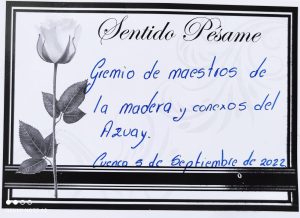 Sentido Pésame
Gremio de maestros de
la madera y conexos del
Azuay.
Cuenca 5 de Septiembre de 2022